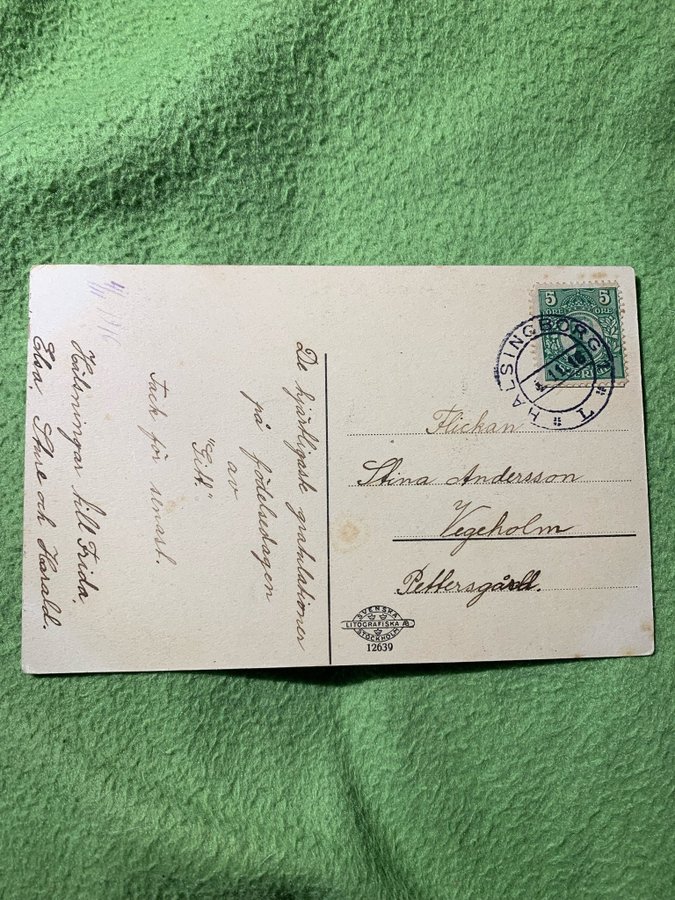 4/11 1916
De hjärtligaste gratulationer
på födelsedagen
av
"Git."
Tack för senast.
Hälsningar till Frida.
Elsa, Sture och Harald.
5 5
ÖRE ÖRE
HÄLSINGBORG
T
Flickan
Stina Andersson
Vegeholm
Pettersgård.
SVENSKA
LITOGRAFISKA AB
STOCKHOLM
12639